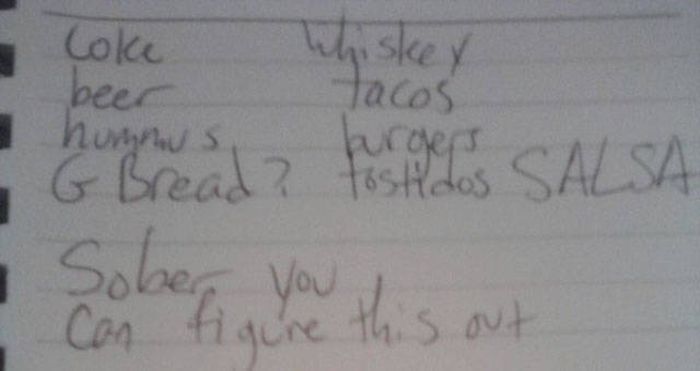 Coke Whiskey
beer tacos
hummus burgers
G Bread? tostidos SALSA
Sober you
Can figure this out